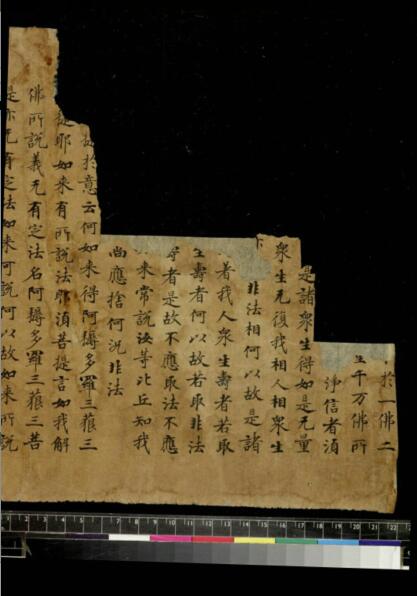 於一佛二
千万佛所
淨信者湏
是諸衆生得如是无量
衆生无復我相人相衆生
非法相何以故是諸
着我人衆生壽者若取
生壽者何以故若取非法
者是故不應取法不應
来常說汝等比丘知我
尚應捨何況非法
於意云何如来得阿耨多羅三藐三
提耶如来有所說法耶湏菩提言如我解
佛所說義无有定法名阿耨多羅三藐三菩
是亦无有定法如来可說何以故如来所說
0 1 2 3 4 5 6 7 8 9 10 11 12 13 14 15 16 17 18 19 20 21 22